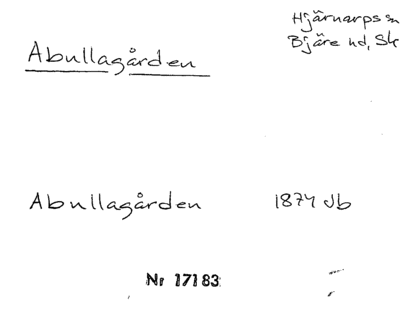 Hjärnarps sn
Bjäre hd, Sk
Abullagården
Abullagården 1874 Jb
Nr 17183